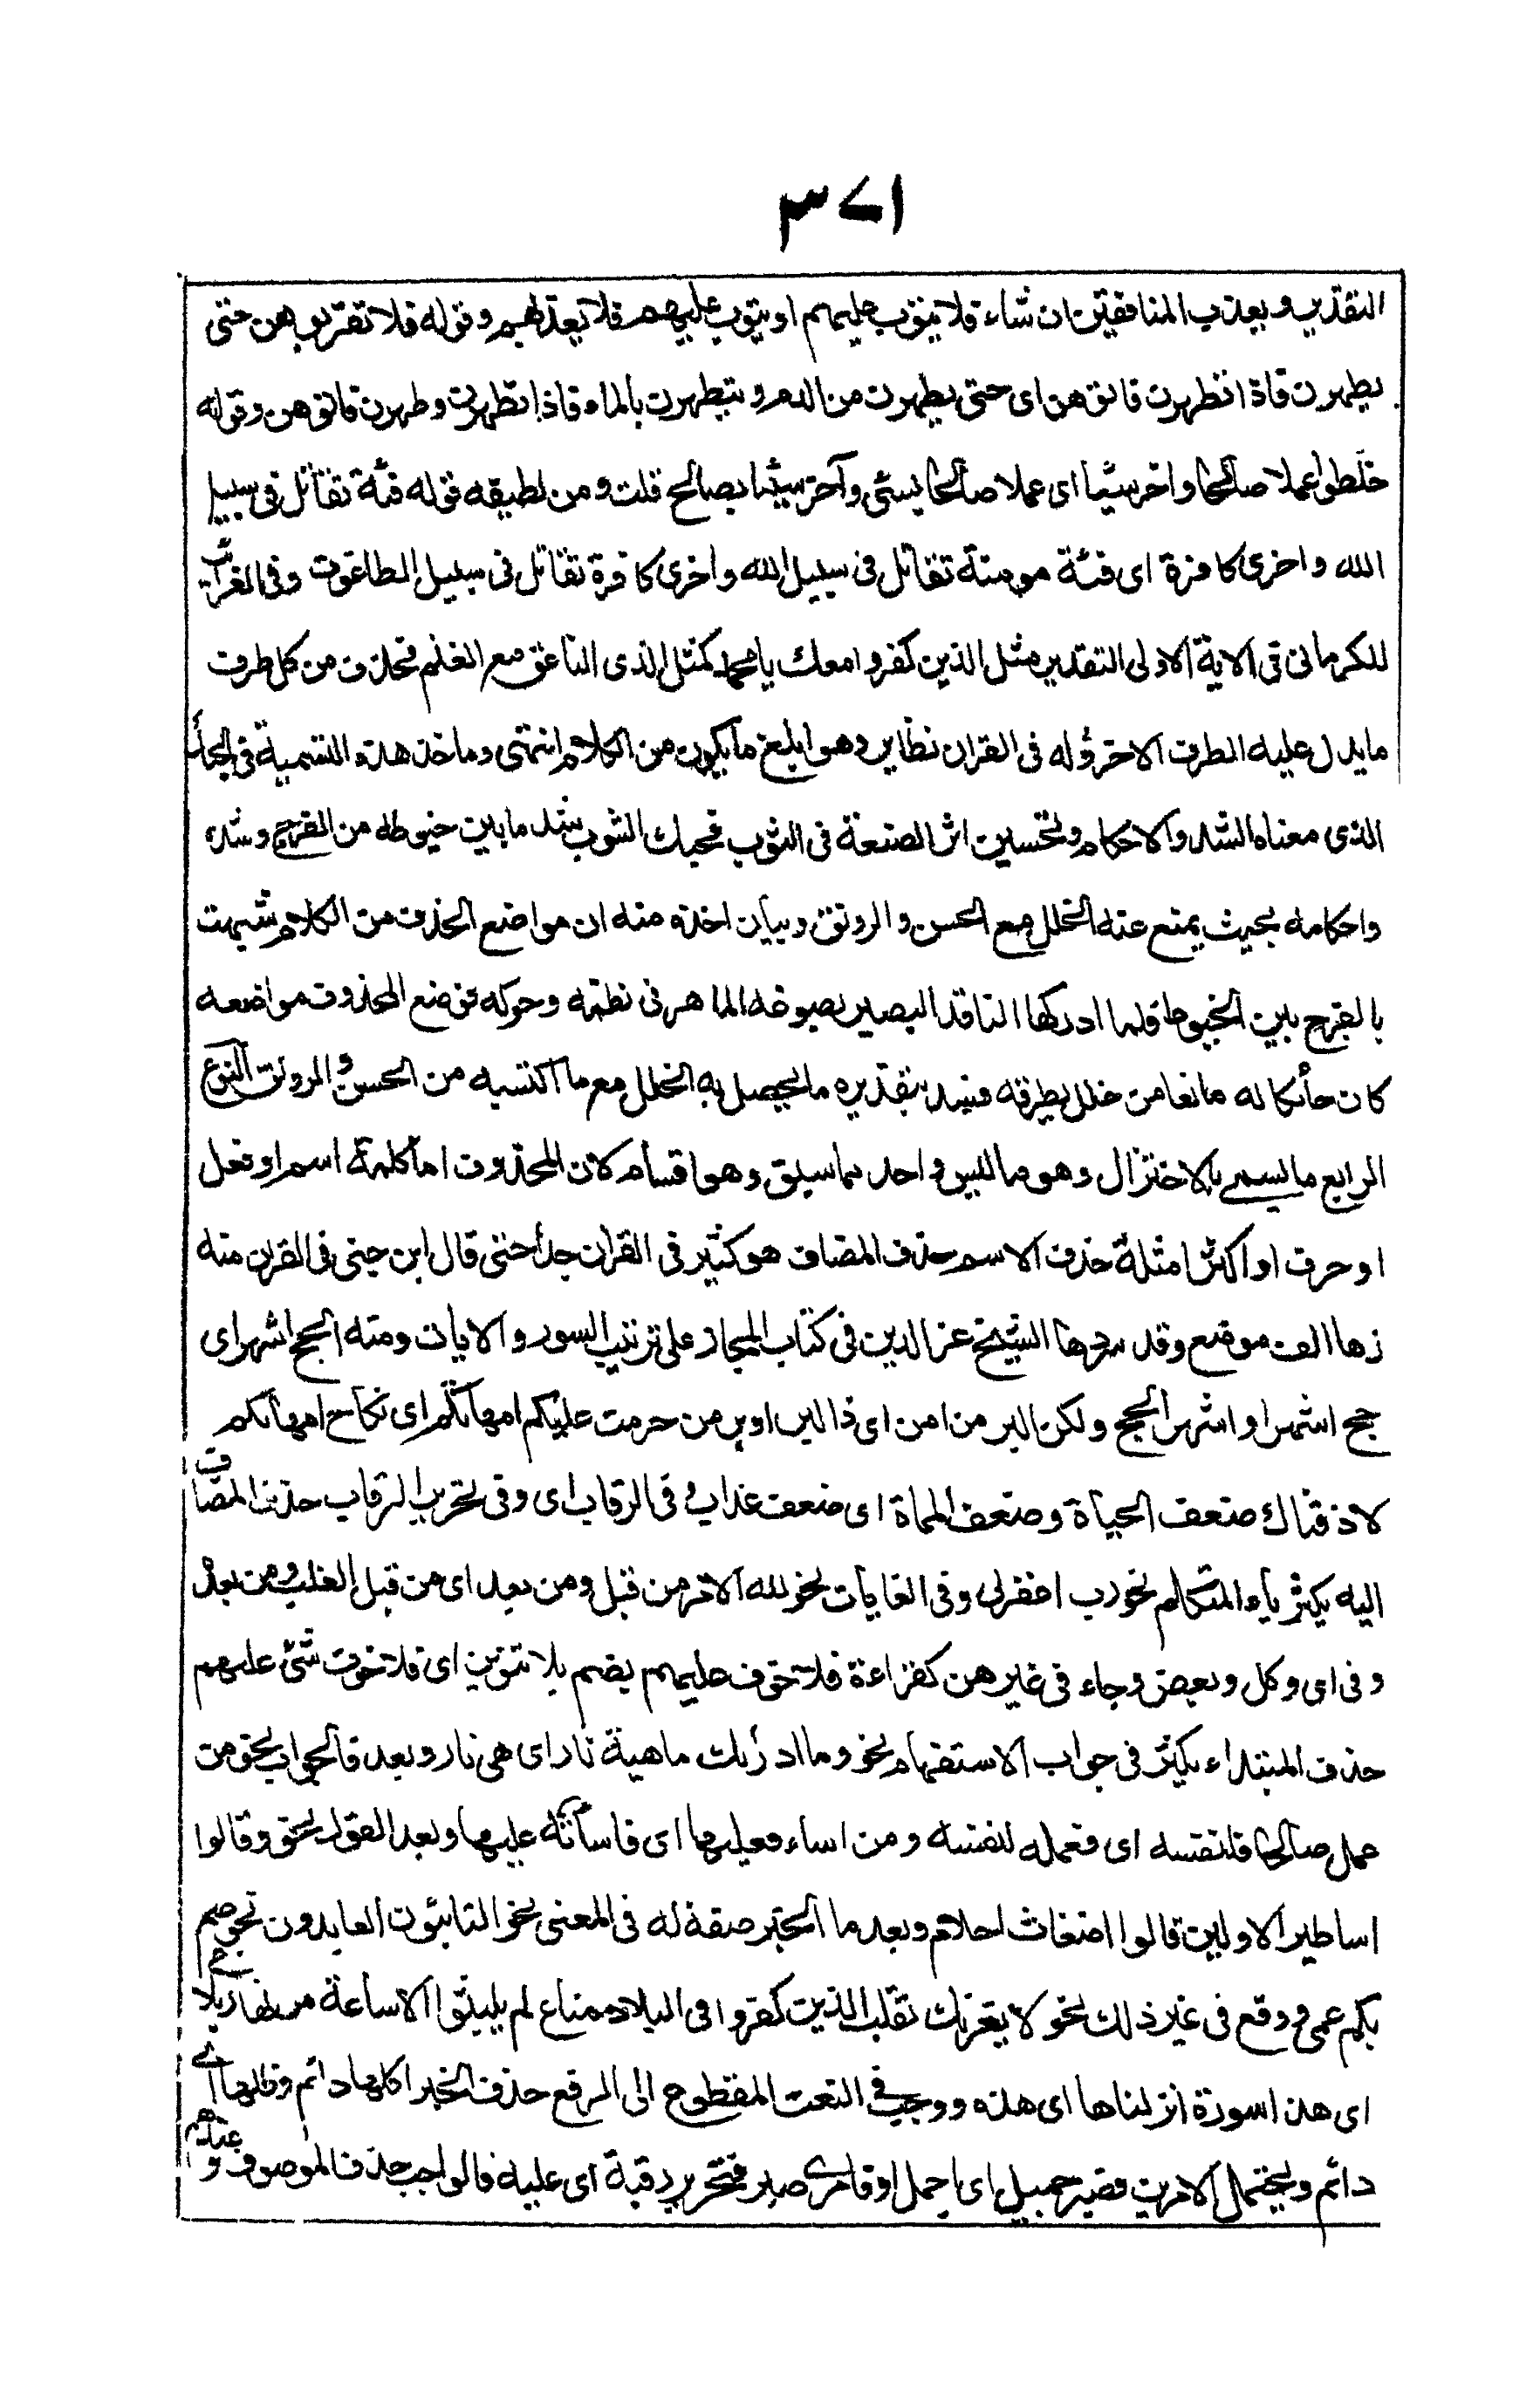 ٣٧١
التقدير ويعذب المنافقين ان شاء فلا يتوب عليهم او يتوب عليهم فلا يعذبهم وقوله فلا تقربوهن حتى
يطهرن فاذا تطهرن فاتوهن اى حتى يطهرن من الدم ويتطهرن بالماء فاذا تطهرن وطهرن فاتوهن وقوله
خلطوا عملا صالحا واخر سيئا اى عملا صالحا بسئ وآخر سيئا بصالح قلت ومن لطيفه قوله فئة تقاتل فى سبيل
الله واخرى كافرة اى فئة مومنة تقاتل فى سبيل الله واخرى كافرة تقاتل فى سبيل الطاغوت وفى الغرائب
للكرمانى فى الاية الاولى التقدير مثل الذين كفروا معك يا محمد كمثل الذى الناعق مع الغنم فحذف من كل طرف
ما يدل عليه الطرف الاخر وله فى القران نظاير وهو ابلغ ما يكون من الكلام انتهى وماخذ هذه التسمية فى الحبك
الذى معناه الشد والاحكام وتحسين اثر الصنعة فى الثوب فحبك الثوب سد ما بين خيوطه من الفرج وشده
واحكامه بحيث يمنع عنه الخلل مع الحسن والرونق وبيان اخذه منه ان مواضع الحذف من الكلام شبهت
بالفرج بين الخيوط فلما ادركها الناقد البصير بصوغه الماهر فى نظمه وحوكه فوضع المحذوف مواضعه
كان حائكا له مانعا من خلل يطرقه فسد بتقديره ما يحصل به الخلل مع ما اكتسبه من الحسن والرونق النوع
الرابع ما يسمى بالاختزال وهو ما ليس واحد مما سبق وهو اقسام لان المحذوف اما كلمة اسم او فعل
او حرف او اكثر امثلة حذف الاسم حذف المضاف هو كثير فى القران جدا حتى قال ابن جنى فى القران منه
زها الف موضع وقد سردها الشيخ عز الدين فى كتاب المجاز على ترتيب السور والايات ومنه الحج اشهر اى
حج اشهر او اشهر الحج ولكن البر من امن اى ذا البر او بر من حرمت عليكم امهاتكم اى نكاح امهاتكم
لاذقناك ضعف الحياة وضعف المماة اى ضعف عذاب وفى الرقاب اى وفى تحرير الرقاب حذف المضاف
اليه يكثر ياء المتكلم نحو رب اغفرلى وفى الغايات نحو لله الامر من قبل ومن بعد اى من قبل الغلب ومن بعده
وفى اى وكل وبعض وجاء فى غيرهن كقراءة فلا خوف عليهم بضم بلا تنوين اى فلا خوف شئ عليهم
حذف المبتداء يكثر فى جواب الاستفهام نحو وما ادريك ماهية نار اى هى نار وبعد فا الجواب نحو من
عمل صالحا فلنفسه اى فعمله لنفسه ومن اساء فعليها اى فاسأته عليها وبعد القول نحو وقالوا
اساطير الاولين قالوا اضغاث احلام وبعد ما الخبر صفة له فى المعنى نحو التائبون العابدون نحو صم
بكم عمى ووقع فى غير ذلك نحو لا يغرنك تقلب الذين كفروا فى البلاد متاع لم يلبثوا الا ساعة من نهار بلاغ
اى هذا سورة انزلناها اى هذه ووجب فى النعت المقطوع الى الرفع حذف الخبر اكلها دائم وظلها اى
دائم ويحتمل الامرين فصبر جميل اى اجمل او فامرى صبر فتحرير رقبة اى عليه فالواجب حذف الموصوف وعندهم